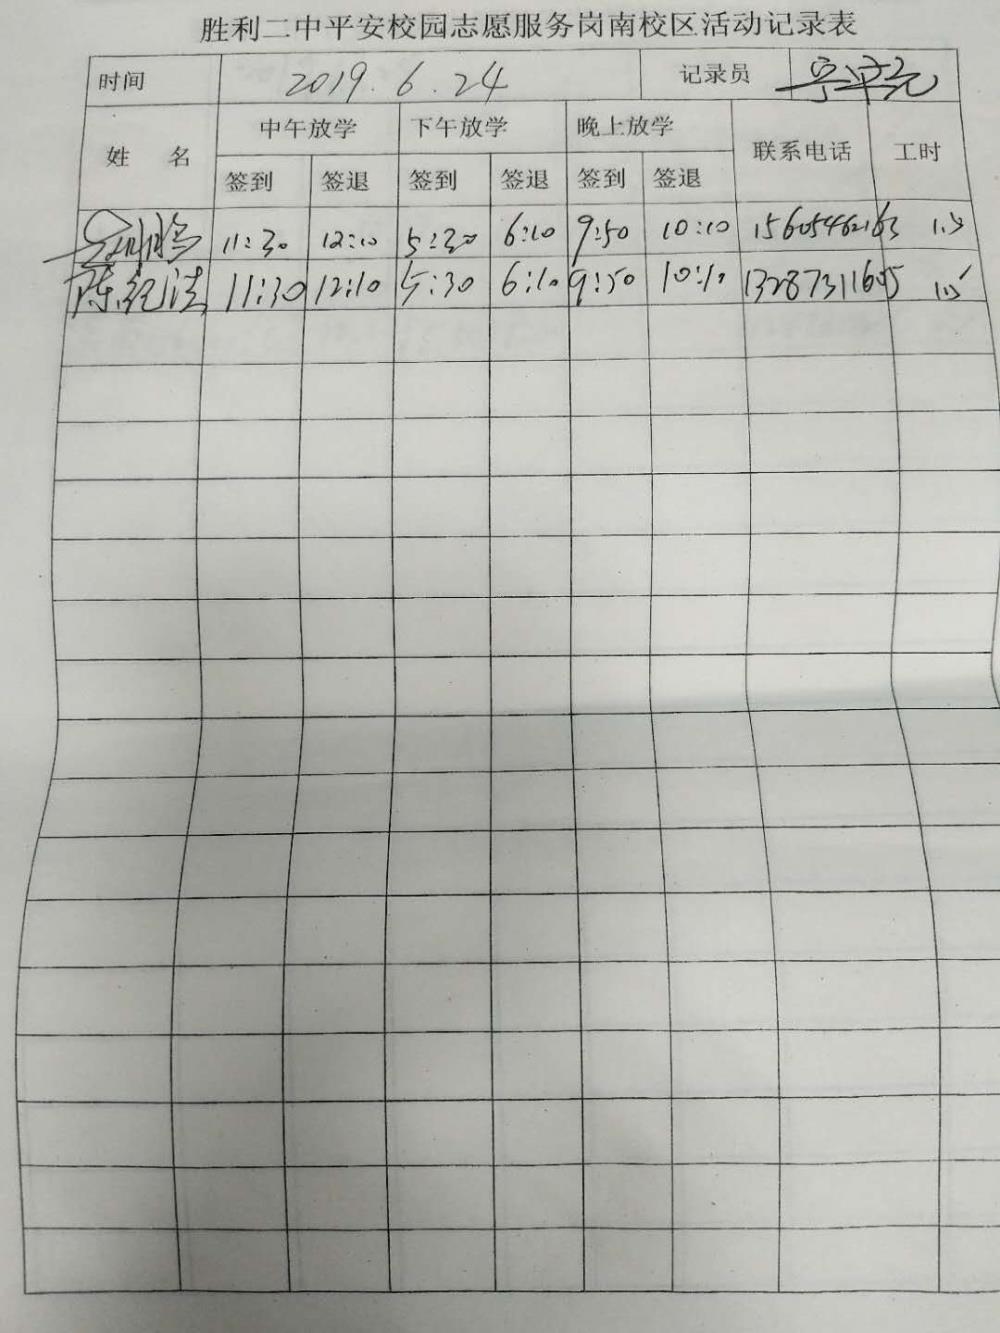 胜利二中平安校园志愿服务岗南校区活动记录表
时间 2019.6.24 记录员
姓 名 中午放学 下午放学 晚上放学 联系电话 工时
签到 签退 签到 签退 签到 签退
11:30 12:10 5:30 6:10 9:50 10:10 15605462163 1.5
陈纪法 11:30 12:10 5:30 6:10 9:50 10:10 13287311605 1.5